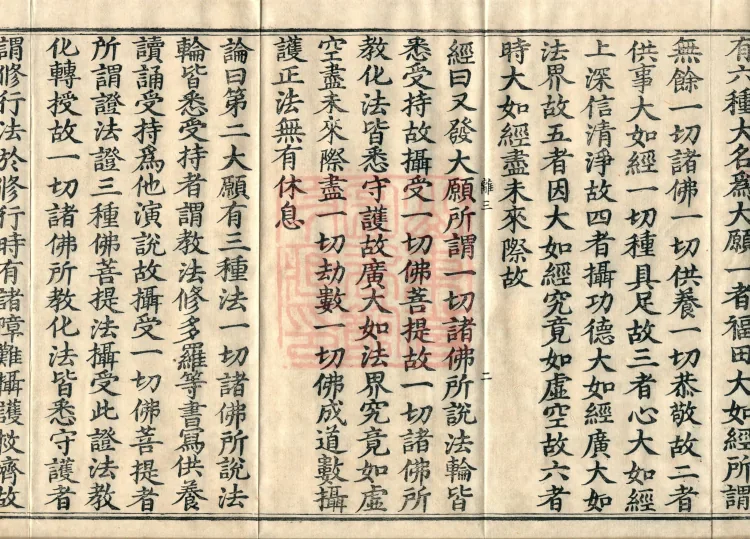 有六種大名爲大願一者福田大如經所謂
無餘一切諸佛一切供養一切恭敬故二者
供事大如經一切種具足故三者心大如經
上深信清淨故四者攝功德大如經廣大如
法界故五者因大如經究竟如虛空故六者
時大如經盡未來際故
二
經曰又發大願所謂一切諸佛所說法輪皆
悉受持故攝受一切佛菩提故一切諸佛所
教化法皆悉守護故廣大如法界究竟如虛
空盡未來際盡一切劫數一切佛成道數攝
護正法無有休息
論曰第二大願有三種法一切諸佛所說法
輪皆悉受持者謂教法修多羅等書寫供養
讀誦受持爲他演說故攝受一切佛菩提者
所謂證法證三種佛菩提法攝受此證法教
化轉授故一切諸佛所教化法皆悉守護者
謂修行法於修行時有諸障難攝護救濟故